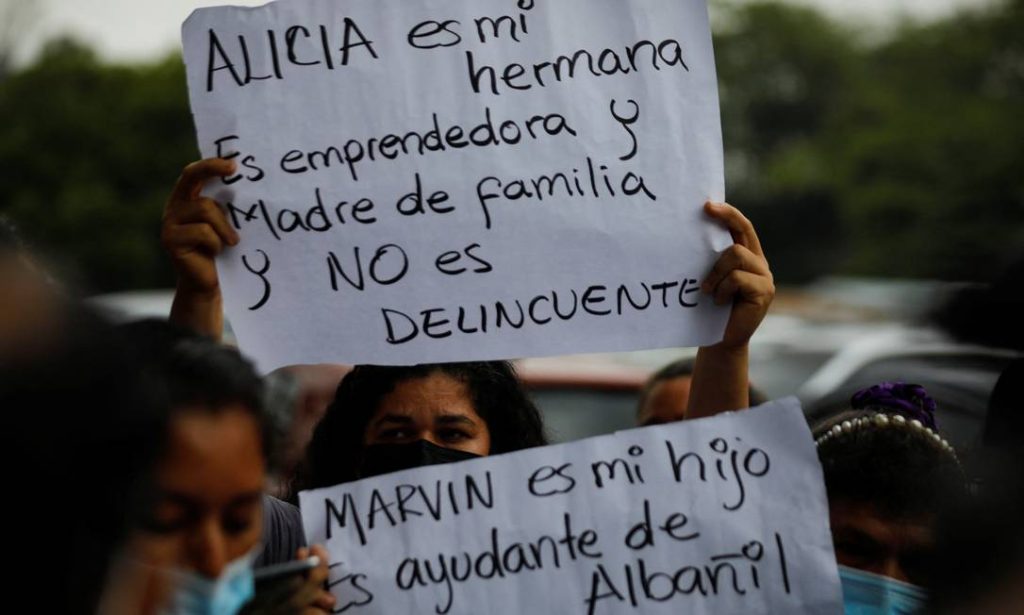 ALICIA es mi
hermana
Es emprendedora y
Madre de familia
y NO es
DELINCUENTE
MARVIN es mi hijo
Es ayudante de
Albañil